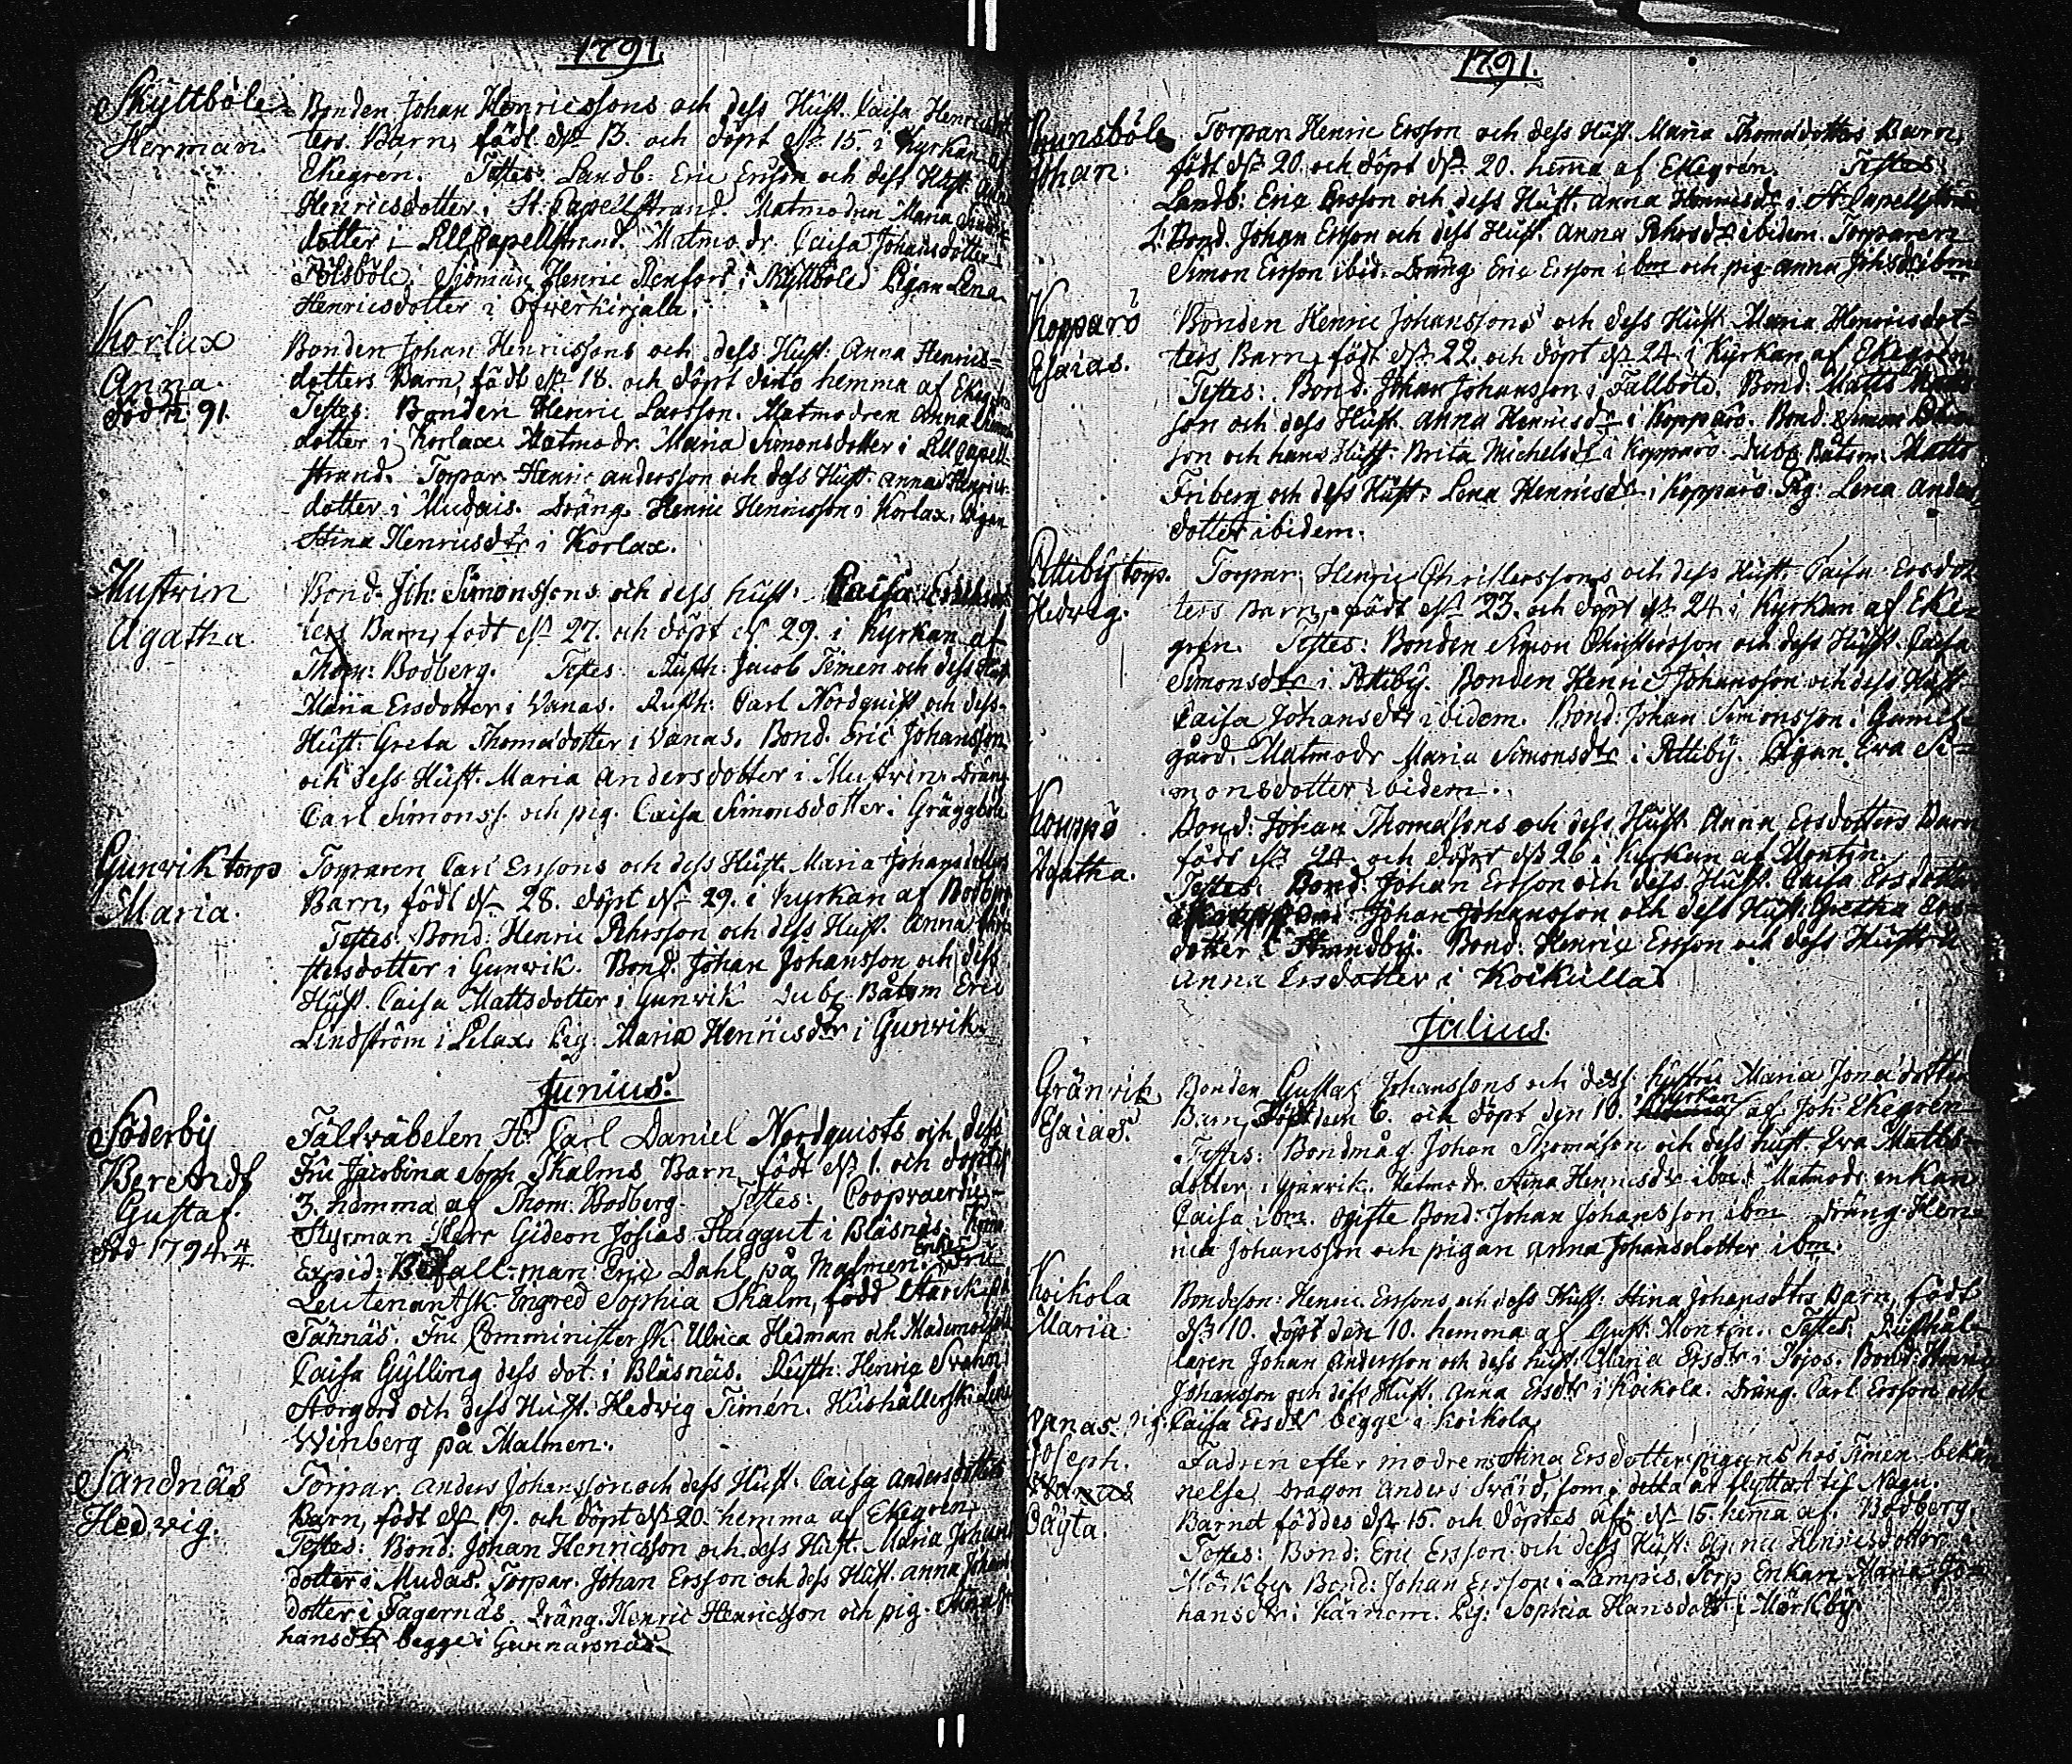 1791.
Skyttböle Bonden Johan Henricssons och dess Hust. Caisa Henricsdot
Herman ters Barn, födt d. 13. och döpt d. 15. i Kyrkan af
Ekegren. Testes: Landb: Eric Ersson och dess Hust. Anna
Henricsdotter i St. Capellstrand. Matmodren Maria
dotter i Lill Capellstrand. Matmo dr. Caisa Johansdotter i
Pölsböle, Sjöman Henric Renfors i Skyttböle Pigan Lena
Henricsdotter i Öfverkirjala.
Korlax Bonden Johan Henricssons och dess Hust: Anna Henrics-
Anna. dotters Barn, födt d. 18. och döpt dito hemma af Ekegren
död 91. Testes: Bonden Henric Larsson. Matmodren Anna
dotter i Korlax. Matmodr. Maria Simonsdotter i Lill Capell
strand. Torpar Henric Andersson och dess Hust. Anna Henrics
dotter i Mudais. Dräng Henric Henricsson i Korlax, Pigan
Stina Henricsdtr i Korlax.
Mustvin Bond. Joh: Simonssons och dess hust. Caisa
Agatha ters Barn, födt d. 27. och döpt d. 29. i Kyrkan af
Thom: Bodberg. Testes Rusth: Jacob Timen och dess Hust
Maria Ersdotter i Vanas. Rusth: Carl Nordquist och dess
Hust: Greta Thomasdotter i Vanas. Bond. Eric Johansson
och dess Hust. Maria Andersdotter i Mustvin. Dräng
Carl Simonss. och pig. Caisa Simonsdotter i Gräggböle
Gunvik torp Torparen Carl Erssons och dess Hust. Maria Johansdotters
Maria. Barn, födt d. 28. döpt d. 29. i Kyrkan af Bodberg
Testes. Bond: Henric Pehrsson och dess Hust. Anna
stersdotter i Gunvik. Bond. Johan Johansson och dess
Hust. Caisa Mattsdotter i Gunvik Dubl. Båtsm Eric
Lindström i Lelax. Pig: Maria Henricsdtr i Gunvik.
Junius.
Söderby Fältväbelen Hr Carl Daniel Nordquists och dess
Berendt Fru Jacobina Soph. Skalms Barn, födt d. 1. och döpt d.
Gustaf. 3. hemma af Thom. Bodberg. Testes: Coopvaerdie-
död 1794 4/4. Styrman Herr Gideon Josias Haggut i Bläsnäs.
Expid: Befall-man Eric Dahl på Malmen. Enke Fru
Leutenantsk. Engred Sophia Skalm, född Starck
Tännäs. Fru Comministersk. Ulrica Hedman och Mademoiselle
Caisa Gylling dess dot. i Bläsnäs. Rusth. Henric
Storgård och dess Hust. Hedvig Timén. Hushållersk. Lena
Winberg på Malmen.
Sandnäs Torpar. Anders Johansson och dess Hust. Caisa Andersdotters
Hedvig. Barn, födt d. 19. och döpt d. 20. hemma af Ekegren
Testes: Bond: Johan Henricsson och dess Hust. Maria Johans
dotter i Mudas. Torpar. Johan Ersson och dess Hust. Anna
dotter i Fagernäs. Dräng. Henric Henricsson och pig. Stina Jo
hansdtr begge i Gunnarsnäs.
1791.
Brunsböle Torpan Henric Ersson och dess Hust. Maria Thomasdotters Barn,
Johan. födt d. 20. och döpt d. 20. hemma af Ekegren. Testes
Landb: Eric Ersson och dess Hust. Anna Henricsdr i St. Capellstrand
L. Bond. Johan Ersson och dess Hust. Anna Pehrsdr ibidem. Torparen
Simon Ersson ibid. Dräng Eric Ersson ibm och pig Anna Johsdr ibm
Kopparö Bonden Henric Johanssons och dess Hust Maria Henricsdot-
Esaias. ters Barn, födt d. 22. och döpt d. 24. i Kyrkan af Ekegren
Testes: Bond. Johan Johansson i Fallböle. Bond: Matts
son och dess Hust. Anna Henricsdr i Kopparö. Bond. Simon
son och hans Hust. Brita Michelsdr i Kopparö. Dubl. Båtsm. Matts
Friberg och dess Hust. Lena Henricsdr i Kopparö. Pig: Lena Anders
dotter ibidem.
Attiby torp. Torpar. Henric Christerssons och dess Hust. Caisa Ersdot
Hedvig. ters Barn, födt d. 23. och döpt d. 24. i Kyrkan af Eke-
gren. Testes: Bonden Simon Christersson och dess Hust. Caisa
Simonsdtr i Attiby. Bonden Henric Johansson och dess Hust
Caisa Johansdtr ibidem. Bond: Johan Simonsson i Gammel
gård. Matmodr Maria Simonsdtr i Attiby. Pigan Eva Si-
monsdotter ibidem.
Kouppö Bond: Johan Thomassons och dess Hust Anna Ersdotters Barn
Agatha. födt d. 24. och döpt d. 26 i Kyrkan af Montin.
Testes. Bond. Johan Ersson och dess Hust. Caisa Ersdotter
i Johan Johansson och dess Hust. Gretha Ers
dotter i Strandby. Bond. Henric Ersson och dess Hustru
Anna Ersdotter i Koikulla.
Julius
Gränvik Bonden Gustaf Johanssons och dess hustru Maria Jonædotter
Esaias. Barn, födt den 6. och döpt den 10. i Kyrkan af Joh: Ekegren
Testes: Bondmåg Johan Thomasson och dess hust. Eva Matts-
dotter i Gränvik. Matmodr. Stina Henricsdr ibm. Matmodr. enkan
Caisa ibm. ogifte Bond. Johan Johansson ibm Dräng Hen-
ric Johansson och pigan Anna Johansdotter ibm.
Koikola Bondeson: Henric Erssons och dess Hust: Stina Johansdtrs Barn, födt
Maria. d. 10. döpt den 10. hemma af Gust. Montin. Testes: Rusthål-
laren Johan Andersson och dess hust. Maria Ersdtr i Pojos. Bond: Henric
Johansson och dess Hust. Anna Ersdtr i Koikola. Dräng. Carl Ersson och
Vanas. pig. Caisa Ersdtr begge i Koikola.
Joseph. Fadren efter modren Stina Ersdotter pigans hos Timen bekän
nelse, Dragon Anders Svärd, som i detta år flyttat til Nagu.
oägta. Barnet föddes d. 15. och döptes af d. 15. hemma af. Bodberg
Testes: Bond: Eric Ersson och dess Hust: Agneta Henricsdotter i
Mörkby. Bond: Johan Ersson i Lampis. Torp Enkan Maria Jo
hansdtr i Kärnem. Pig: Sophia Hansdott i Mörkby.